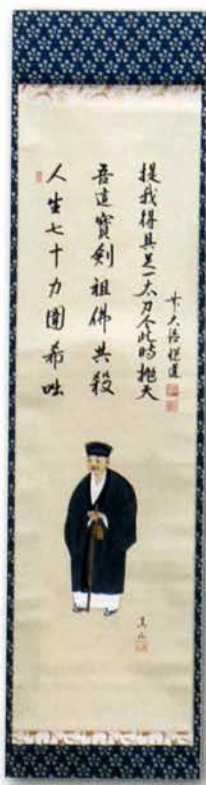 人生七十力圍希咄
吾這寶剣祖佛共殺
提我得具足一太刀今此時抛天